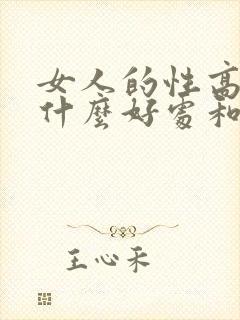 女人的性高
什麼好處和
王心采